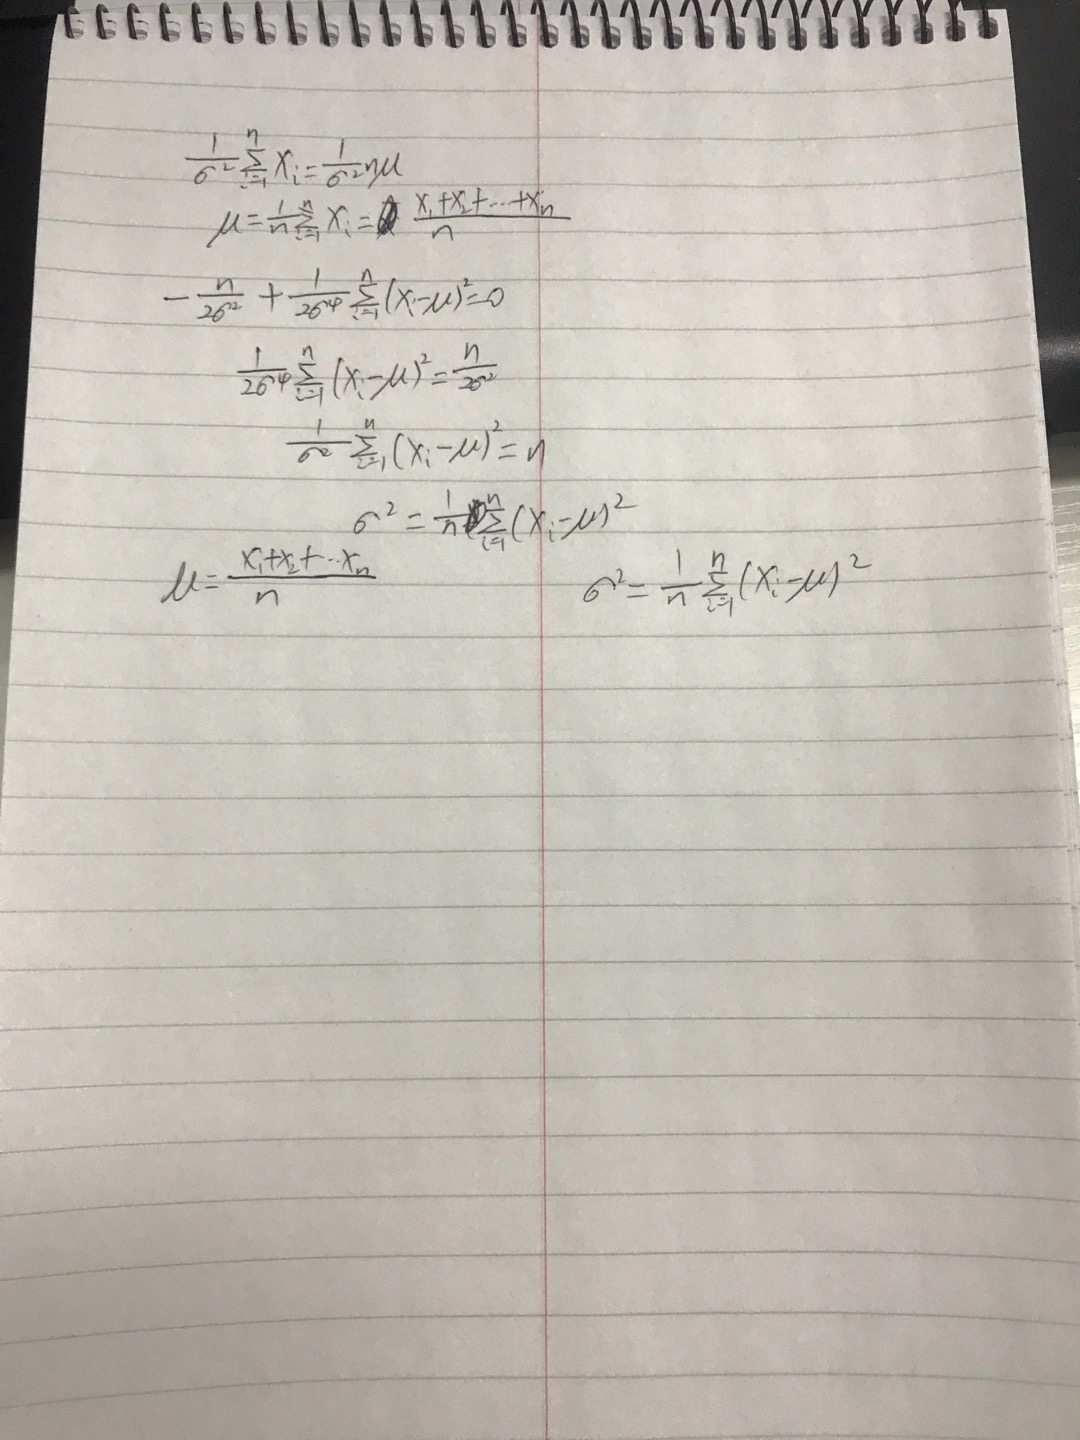 1/σ² ∑ᵢ₌₁ⁿ Xᵢ = 1/σ² nμ
μ = 1/n ∑ᵢ₌₁ⁿ Xᵢ = (X₁+X₂+...+Xₙ)/n
- n/2σ² + 1/2σ⁴ ∑ᵢ₌₁ⁿ (Xᵢ-μ)² = 0
1/2σ⁴ ∑ᵢ₌₁ⁿ (Xᵢ-μ)² = n/2σ²
1/σ² ∑ᵢ₌₁ⁿ (Xᵢ-μ)² = n
σ² = 1/n ∑ᵢ₌₁ⁿ (Xᵢ-μ)²
μ = (X₁+X₂+...Xₙ)/n σ² = 1/n ∑ᵢ₌₁ⁿ (Xᵢ-μ)²